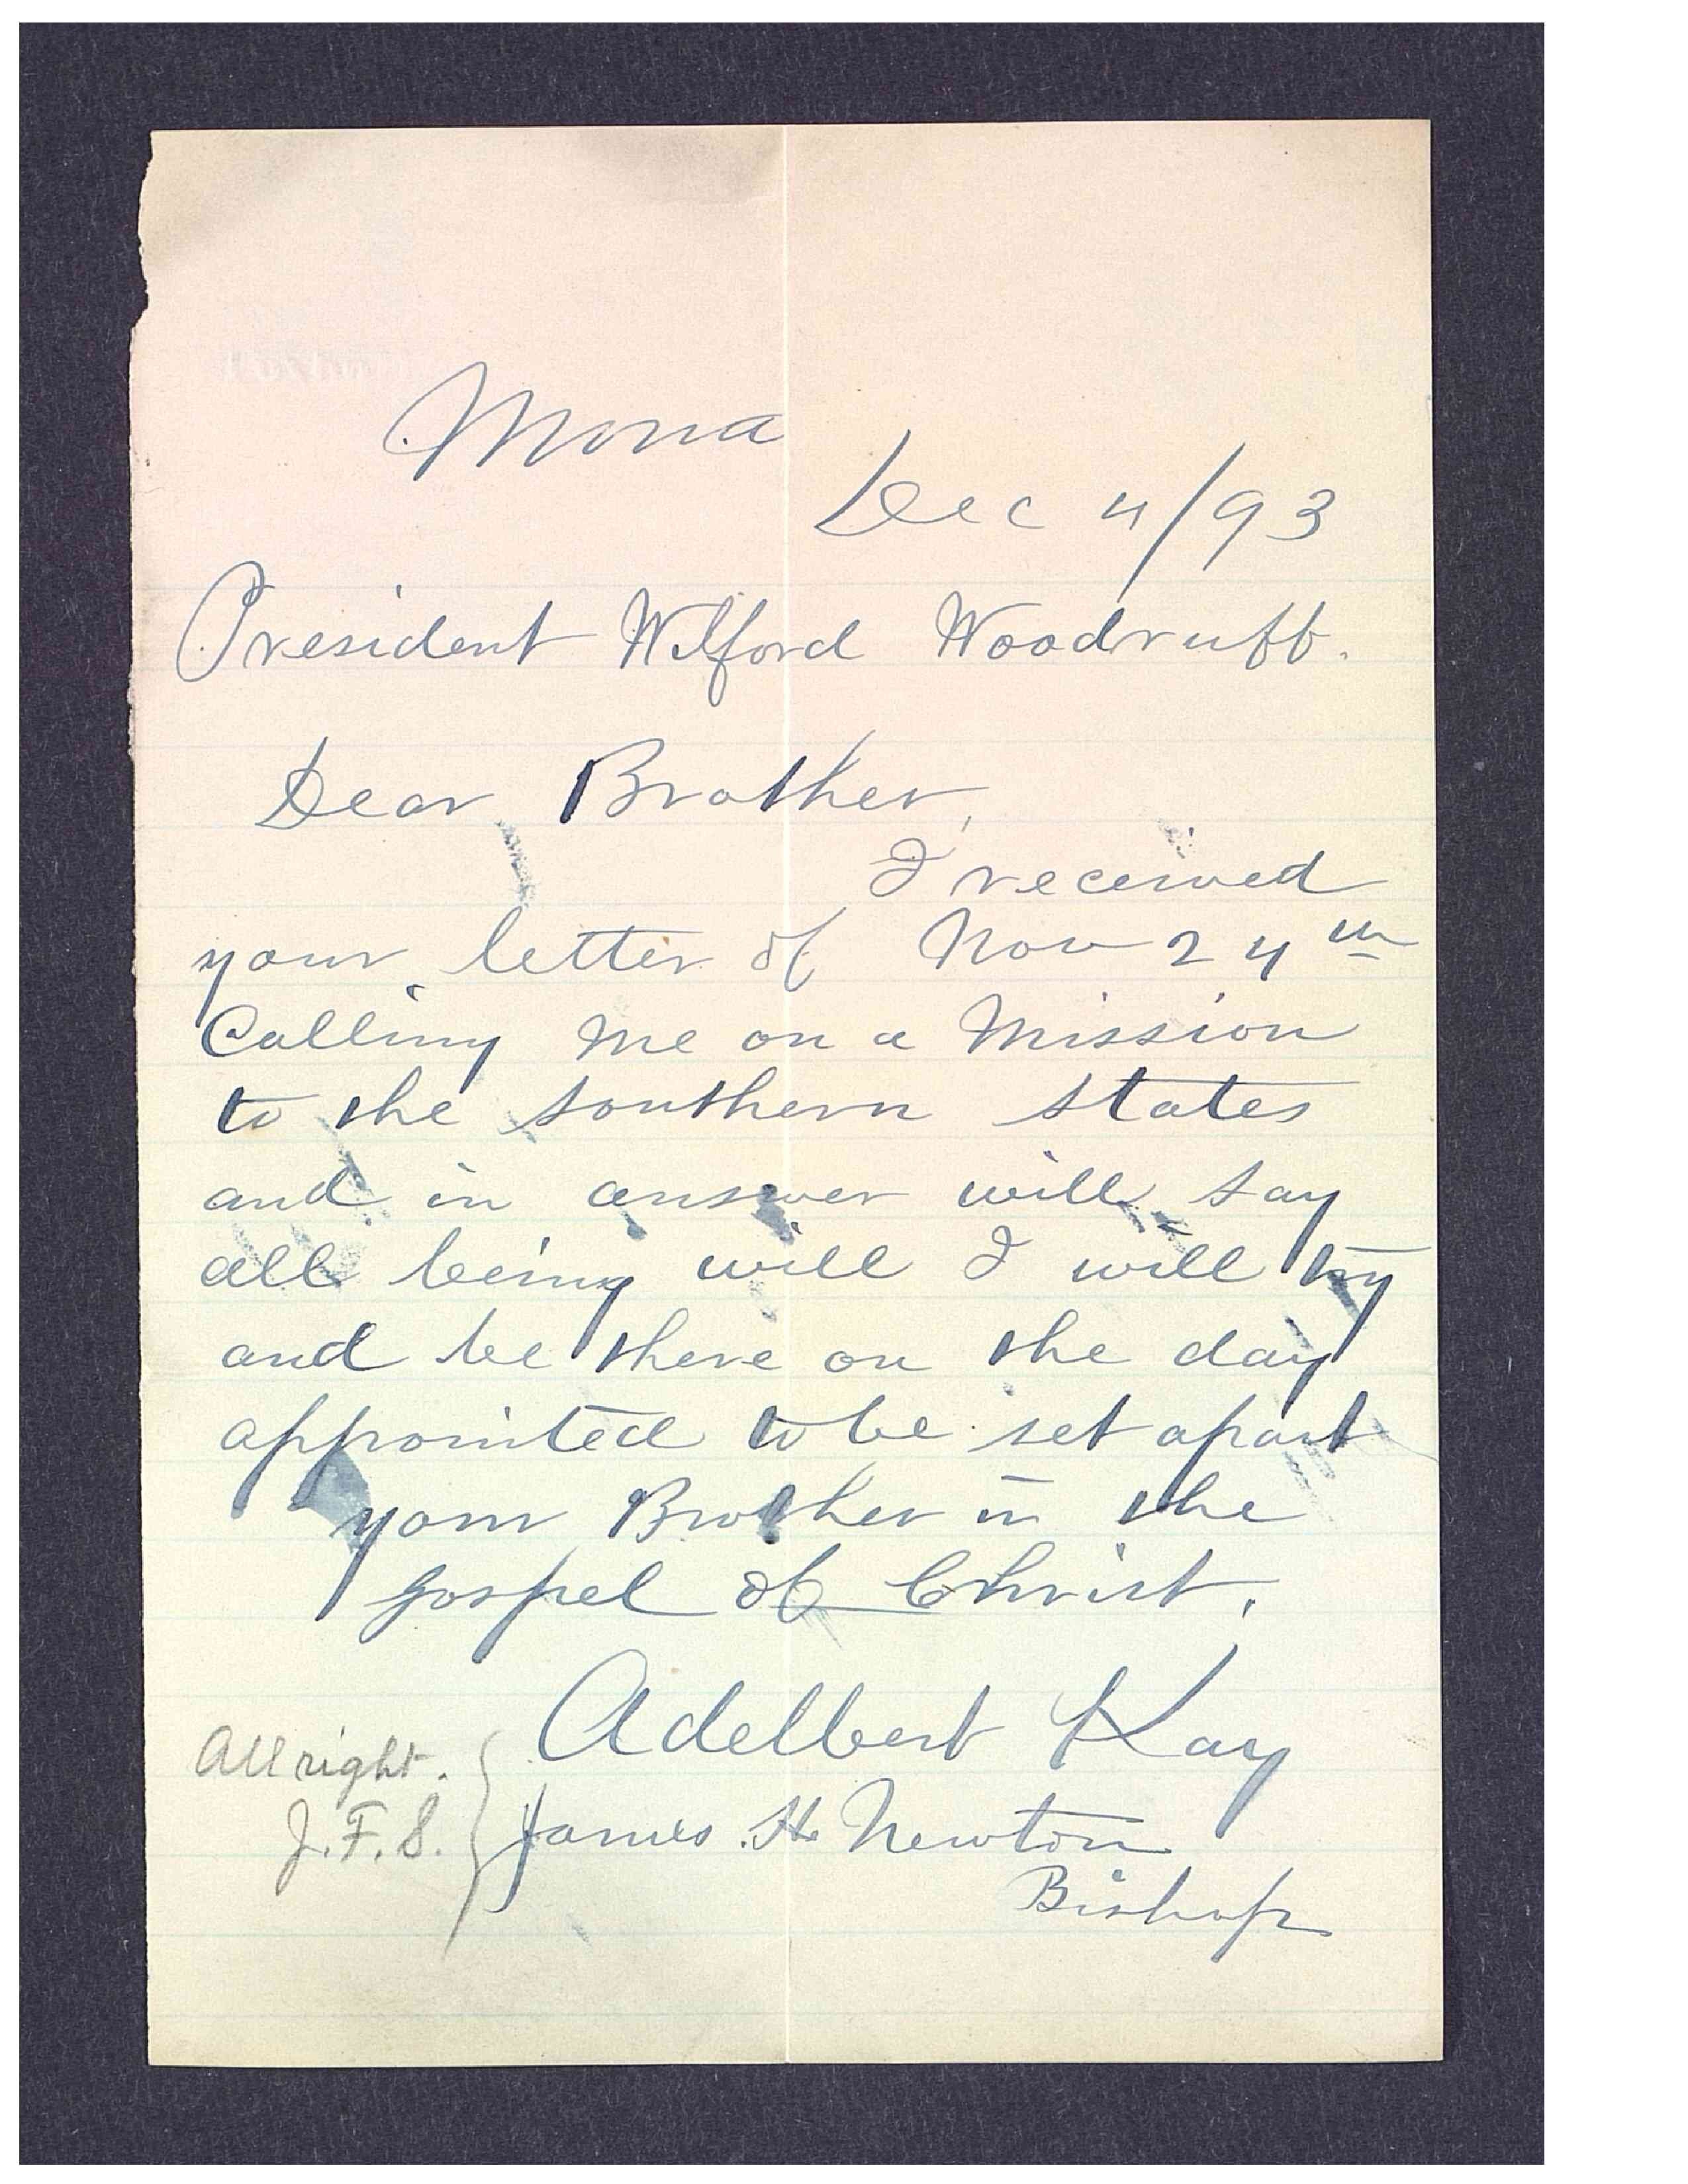 Mona
Dec 4/93
President Wilford Woodruff.
Dear Brother,
I received
your letter of Nov 24th
Calling me on a Mission
to the southern states
and in answer will say
all being will I will try
and be there on the day
appointed to be set apart
your Brother in the
gospel of Christ.
Adelbert Kay
James H Newton
Bishop
All right.
J.F.S.